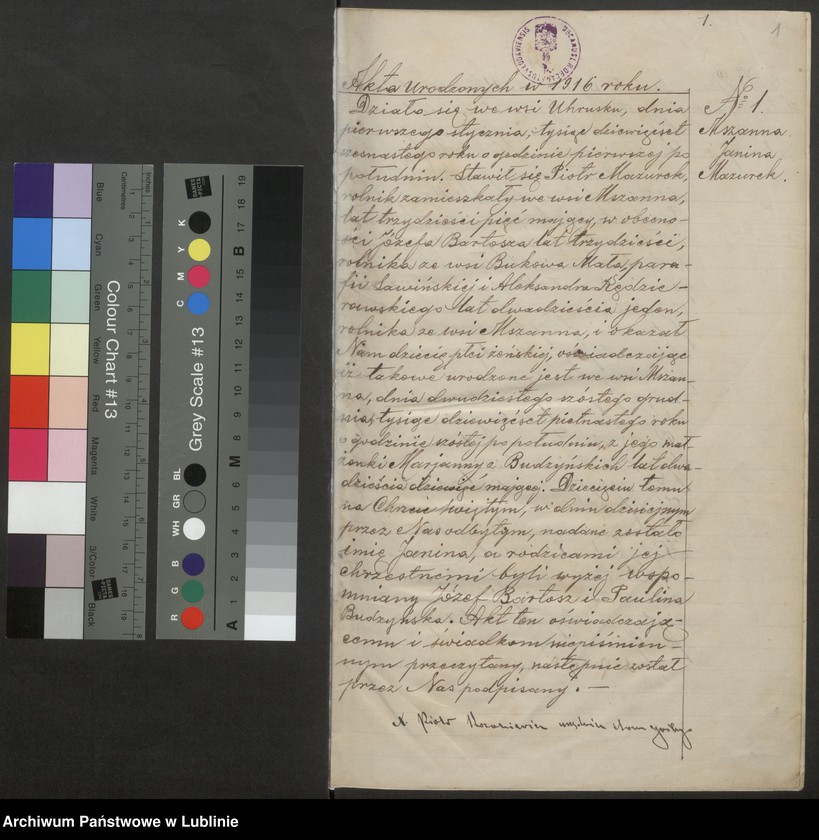 1.
1
Akta Urodzonych w 1916 roku.
Nº 1.
Mszanna
Janina
Mazurek.
Działo się we wsi Uhrusku, dnia
pierwszego stycznia, tysiąc dziewięćset
szesnastego roku o godzinie pierwszej po
południu. Stawił się Piotr Mazurek,
rolnik zamieszkały we wsi Mszanna,
lat trzydzieści pięć mający, w obecno-
ści Józefa Bartosza lat trzydzieści,
rolnika ze wsi Bukowa Mała, para-
fii Sawińskiej i Aleksandra Kędzie-
rawskiego lat dwadzieścia jeden,
rolnika ze wsi Mszanna, i okazał
Nam dziecię płci żeńskiej, oświadczając
iż takowe urodzone jest we wsi Mszan-
na, dnia dwudziestego szóstego grud-
nia, tysiąc dziewięćset piętnastego roku
o godzinie szóstej po południu, z jego mał-
żonki Marjanny z Budzyńskich lat dwa-
dzieścia dziewięć mającej. Dziecięciu temu
na Chrzcie świętym, w dniu dzisiejszym
przez Nas odbytym, nadane zostało
imię Janina, a rodzicami jej
chrzestnemi byli wyżej wspo-
mniany Józef Bartosz i Paulina
Budzyńska. Akt ten oświadczają-
cemu i świadkom niepiśmien-
nym przeczytany, następnie został
przez Nas podpisany. —
X. Piotr
Colour Chart #13
Blue
Cyan
Green
Yellow
Red
Magenta
White
3/Color
Black
Centimetres
Inches
DANES
PICTA
Grey Scale #13
C M Y K
R G B
WH GR BL
A 1 2 3 4 5 6 M 8 9 10 11 12 13 14 15 B 17 18 19
Archiwum Państwowe w Lublinie